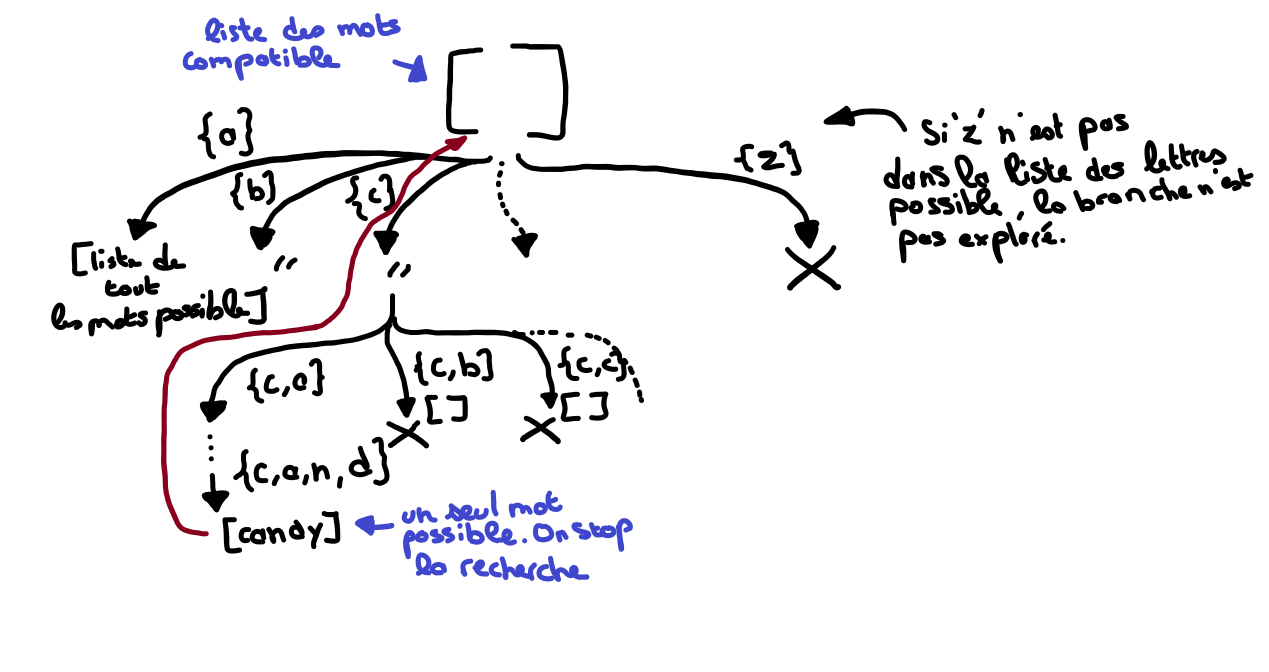 liste des mots
compatible
{a}
{b}
{c}
{z}
Si 'z' n'est pas
dans la liste des lettres
possible, la branche n'est
pas exploré.
[liste de
tout
les mots possible]
"
"
{c,a}
{c,b}
[]
{c,c}
[]
{c,a,n,d}
[candy]
un seul mot
possible. On stop
la recherche